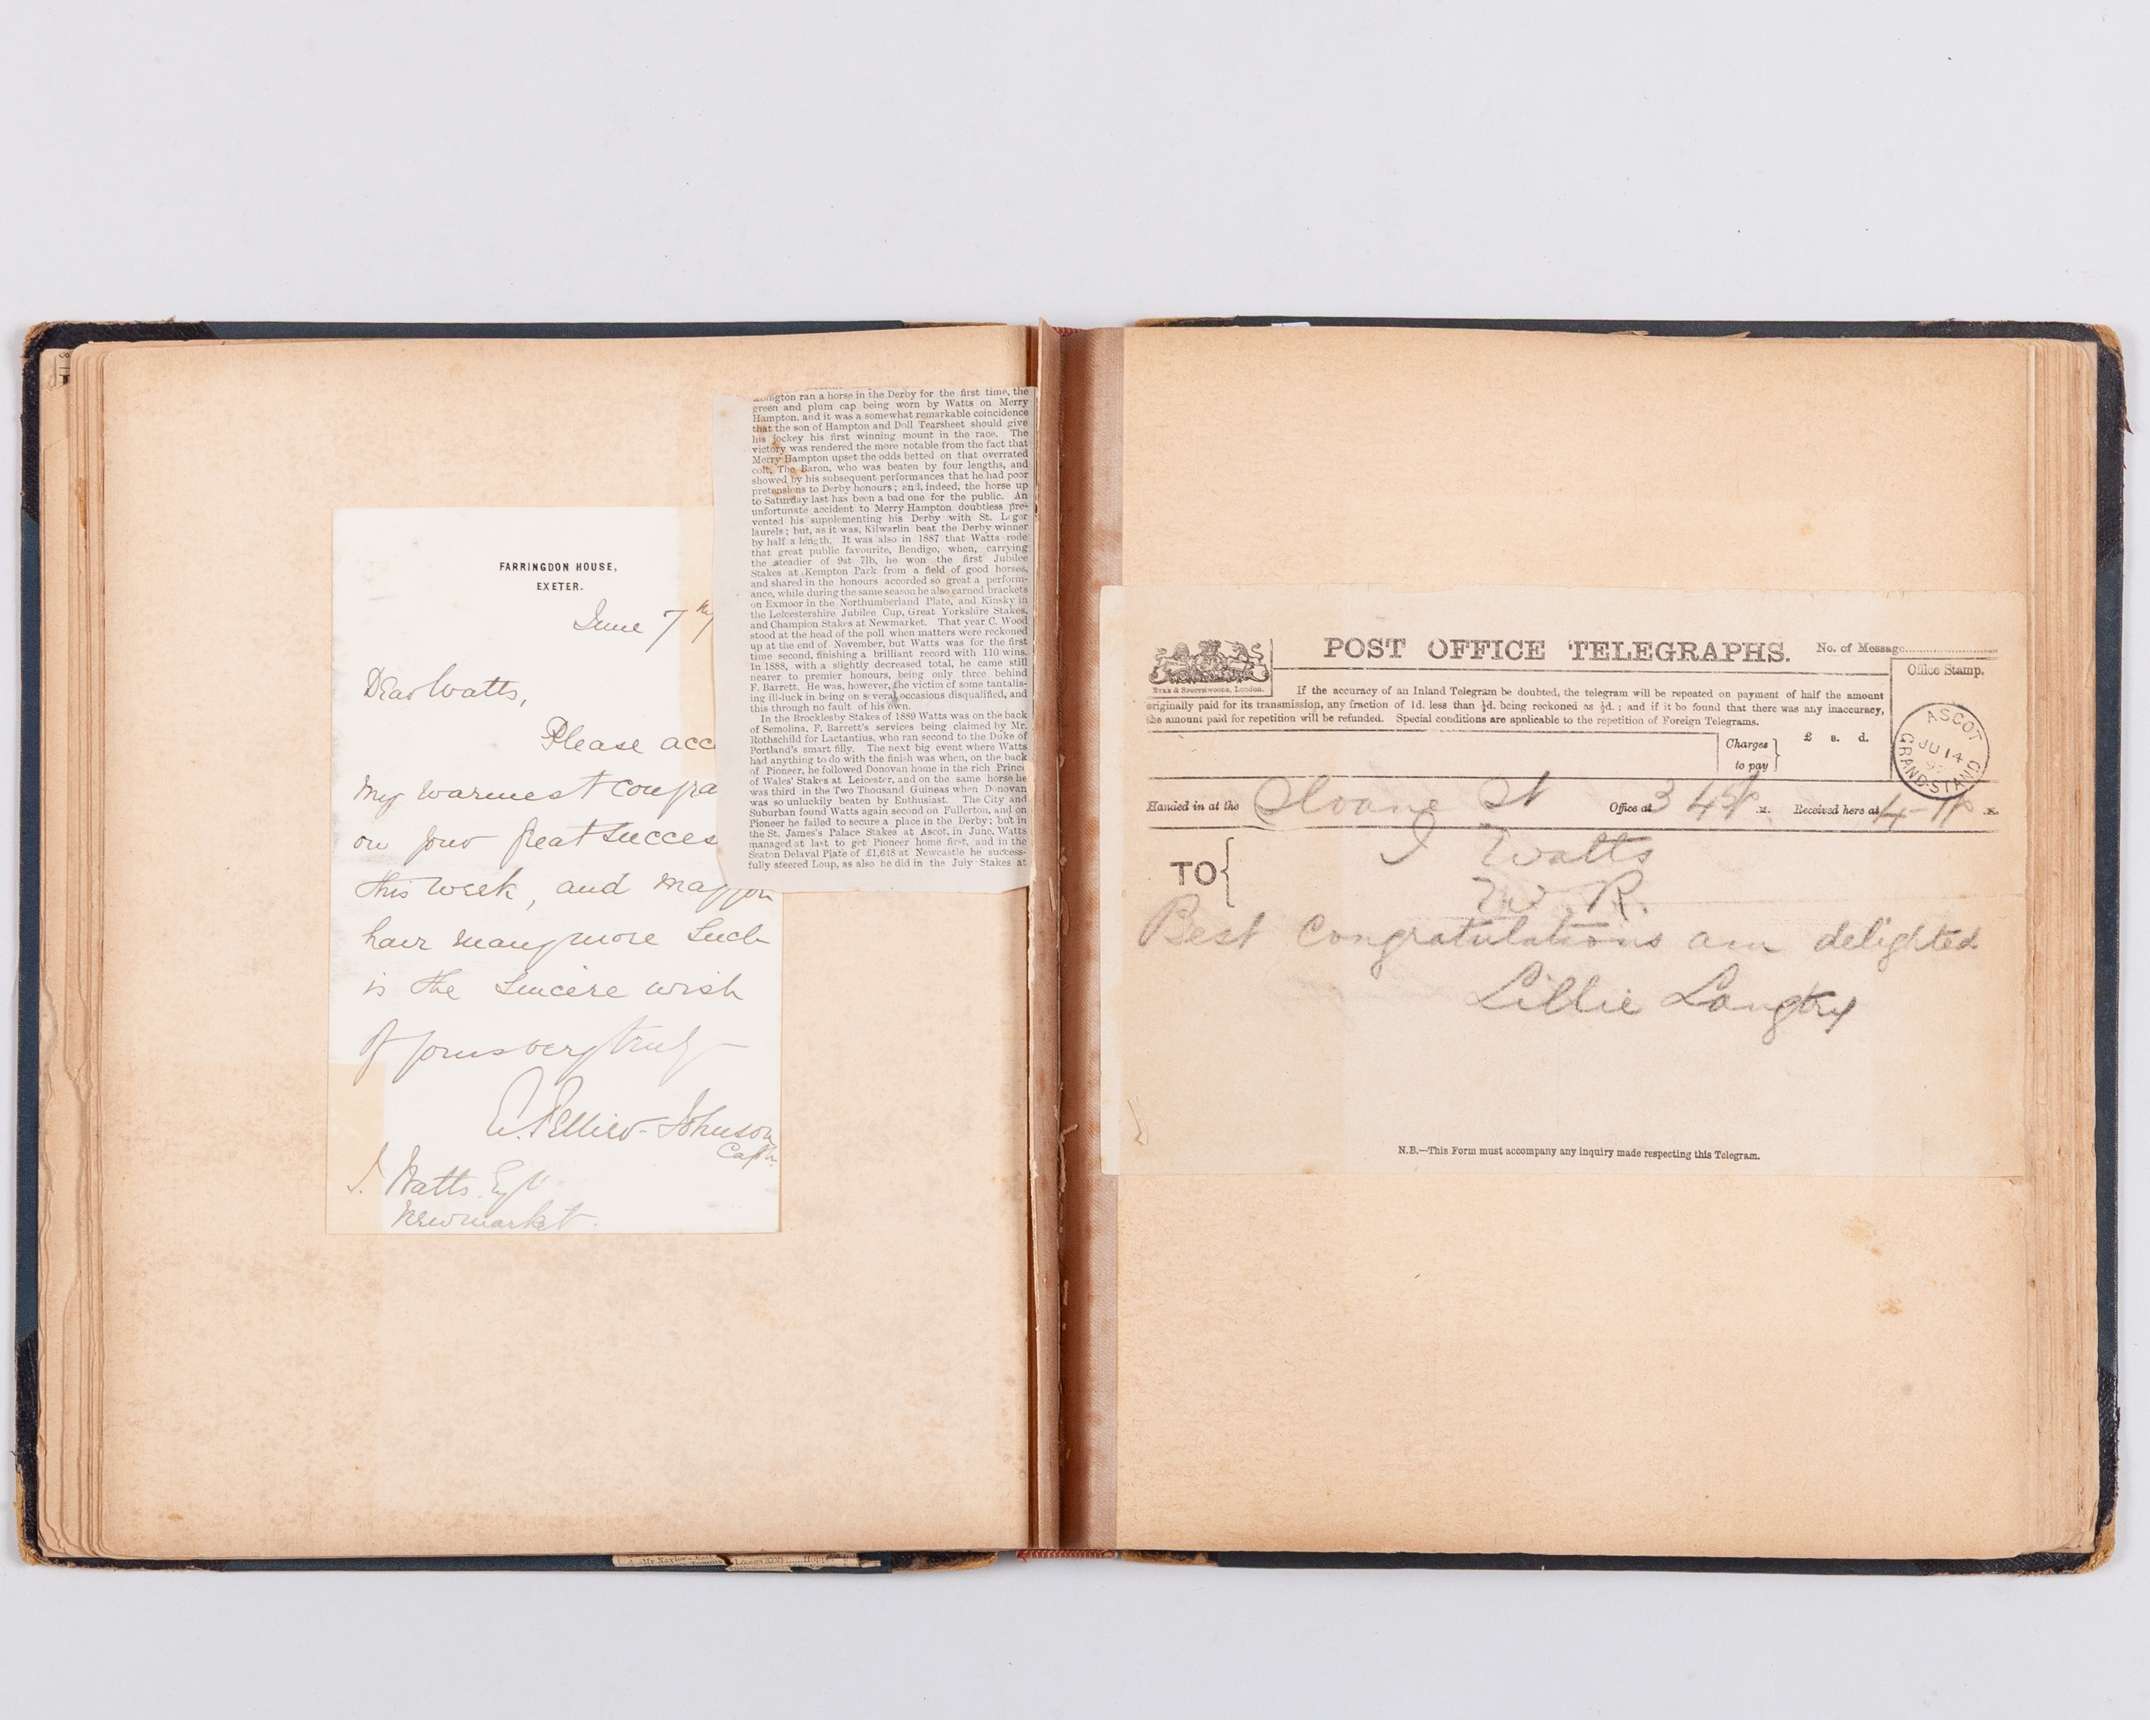 FARRINGDON HOUSE,
EXETER.
June 7th
Dear Watts,
Please acc
my warmest congra
on your great succes
this week, and may you
have many more such
is the sincere wish
of yours very truly
E. Pellew-Johnson
Captn.
J. Watts Esqr
Newmarket.
ran a horse in the Derby for the first time, the
green and plum cap being worn by Watts on Merry
Hampton, and it was a somewhat remarkable coincidence
that the son of Hampton and Doll Tearsheet should give
his jockey his first winning mount in the race. The
victory was rendered the more notable from the fact that
Merry Hampton upset the odds betted on that overrated
colt, The Baron, who was beaten by four lengths, and
showed by his subsequent performances that he had poor
pretensions to Derby honours; and, indeed, the horse up
to Saturday last has been a bad one for the public. An
unfortunate accident to Merry Hampton doubtless pre-
vented his supplementing his Derby with St. Leger
laurels; but, as it was, Kilwarlin beat the Derby winner
by half a length. It was also in 1887 that Watts rode
that great public favourite, Bendigo, when, carrying
the steadier of 9st 7lb, he won the first Jubilee
Stakes at Kempton Park from a field of good horses,
and shared in the honours accorded so great a perform-
ance, while during the same season he also earned brackets
on Exmoor in the Northumberland Plate, and Kinsky in
the Leicestershire Jubilee Cup, Great Yorkshire Stakes,
and Champion Stakes at Newmarket. That year C. Wood
stood at the head of the poll when matters were reckoned
up at the end of November, but Watts was for the first
time second, finishing a brilliant record with 110 wins.
In 1888, with a slightly decreased total, he came still
nearer to premier honours, being only three behind
F. Barrett. He was, however, the victim of some tantalis-
ing ill-luck in being on several occasions disqualified, and
this through no fault of his own.
In the Brocklesby Stakes of 1889 Watts was on the back
of Semolina, F. Barrett's services being claimed by Mr.
Rothschild for Lactantius, who ran second to the Duke of
Portland's smart filly. The next big event where Watts
had anything to do with the finish was when, on the back
of Pioneer, he followed Donovan home in the rich Prince
of Wales' Stakes at Leicester, and on the same horse he
was third in the Two Thousand Guineas when Donovan
was so unluckily beaten by Enthusiast. The City and
Suburban found Watts again second on Fullerton, and on
Pioneer he failed to secure a place in the Derby; but in
the St. James's Palace Stakes at Ascot, in June, Watts
managed at last to get Pioneer home first, and in the
Seaton Delaval Plate of £1,618 at Newcastle he success-
fully steered Loup, as also he did in the July Stakes at
POST OFFICE TELEGRAPHS.
No. of Message
Office Stamp.
Eyre & Spottiswoode, London.
If the accuracy of an Inland Telegram be doubted, the telegram will be repeated on payment of half the amount
originally paid for its transmission, any fraction of 1d. less than ½d. being reckoned as ½d.; and if it be found that there was any inaccuracy,
the amount paid for repetition will be refunded. Special conditions are applicable to the repetition of Foreign Telegrams.
Charges to pay £ s. d.
ASCOT
JU 14
GRAND-STAND
Handed in at the Sloane St Office at 3 4 M. Received here at 4- M.
TO J Watts
W. R.
Best congratulations am delighted
Lillie Langtry
N.B.—This Form must accompany any inquiry made respecting this Telegram.